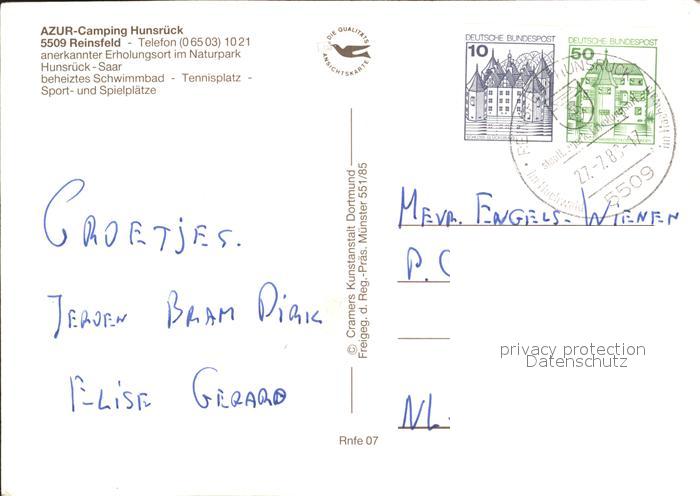 AZUR-Camping Hunsrück
5509 Reinsfeld - Telefon (0 65 03) 10 21
anerkannter Erholungsort im Naturpark
Hunsrück - Saar
beheiztes Schwimmbad - Tennisplatz -
Sport- und Spielplätze
DIE QUALITÄTS
ANSICHTSKARTE
DEUTSCHE BUNDESPOST
10
DEUTSCHE BUNDESPOST
50
HUNSRÜCK
staatl. anerkannter
27.-7.8
-17
5509
GROETJES.
JEROEN BRAM DIRK
ELISE GERARD
© Cramers Kunstanstalt Dortmund
Freigeg. d. Reg.-Präs. Münster 551/85
MEVR. ENGELS-WIENEN
P.C
NL.
privacy protection
Datenschutz
Rnfe 07